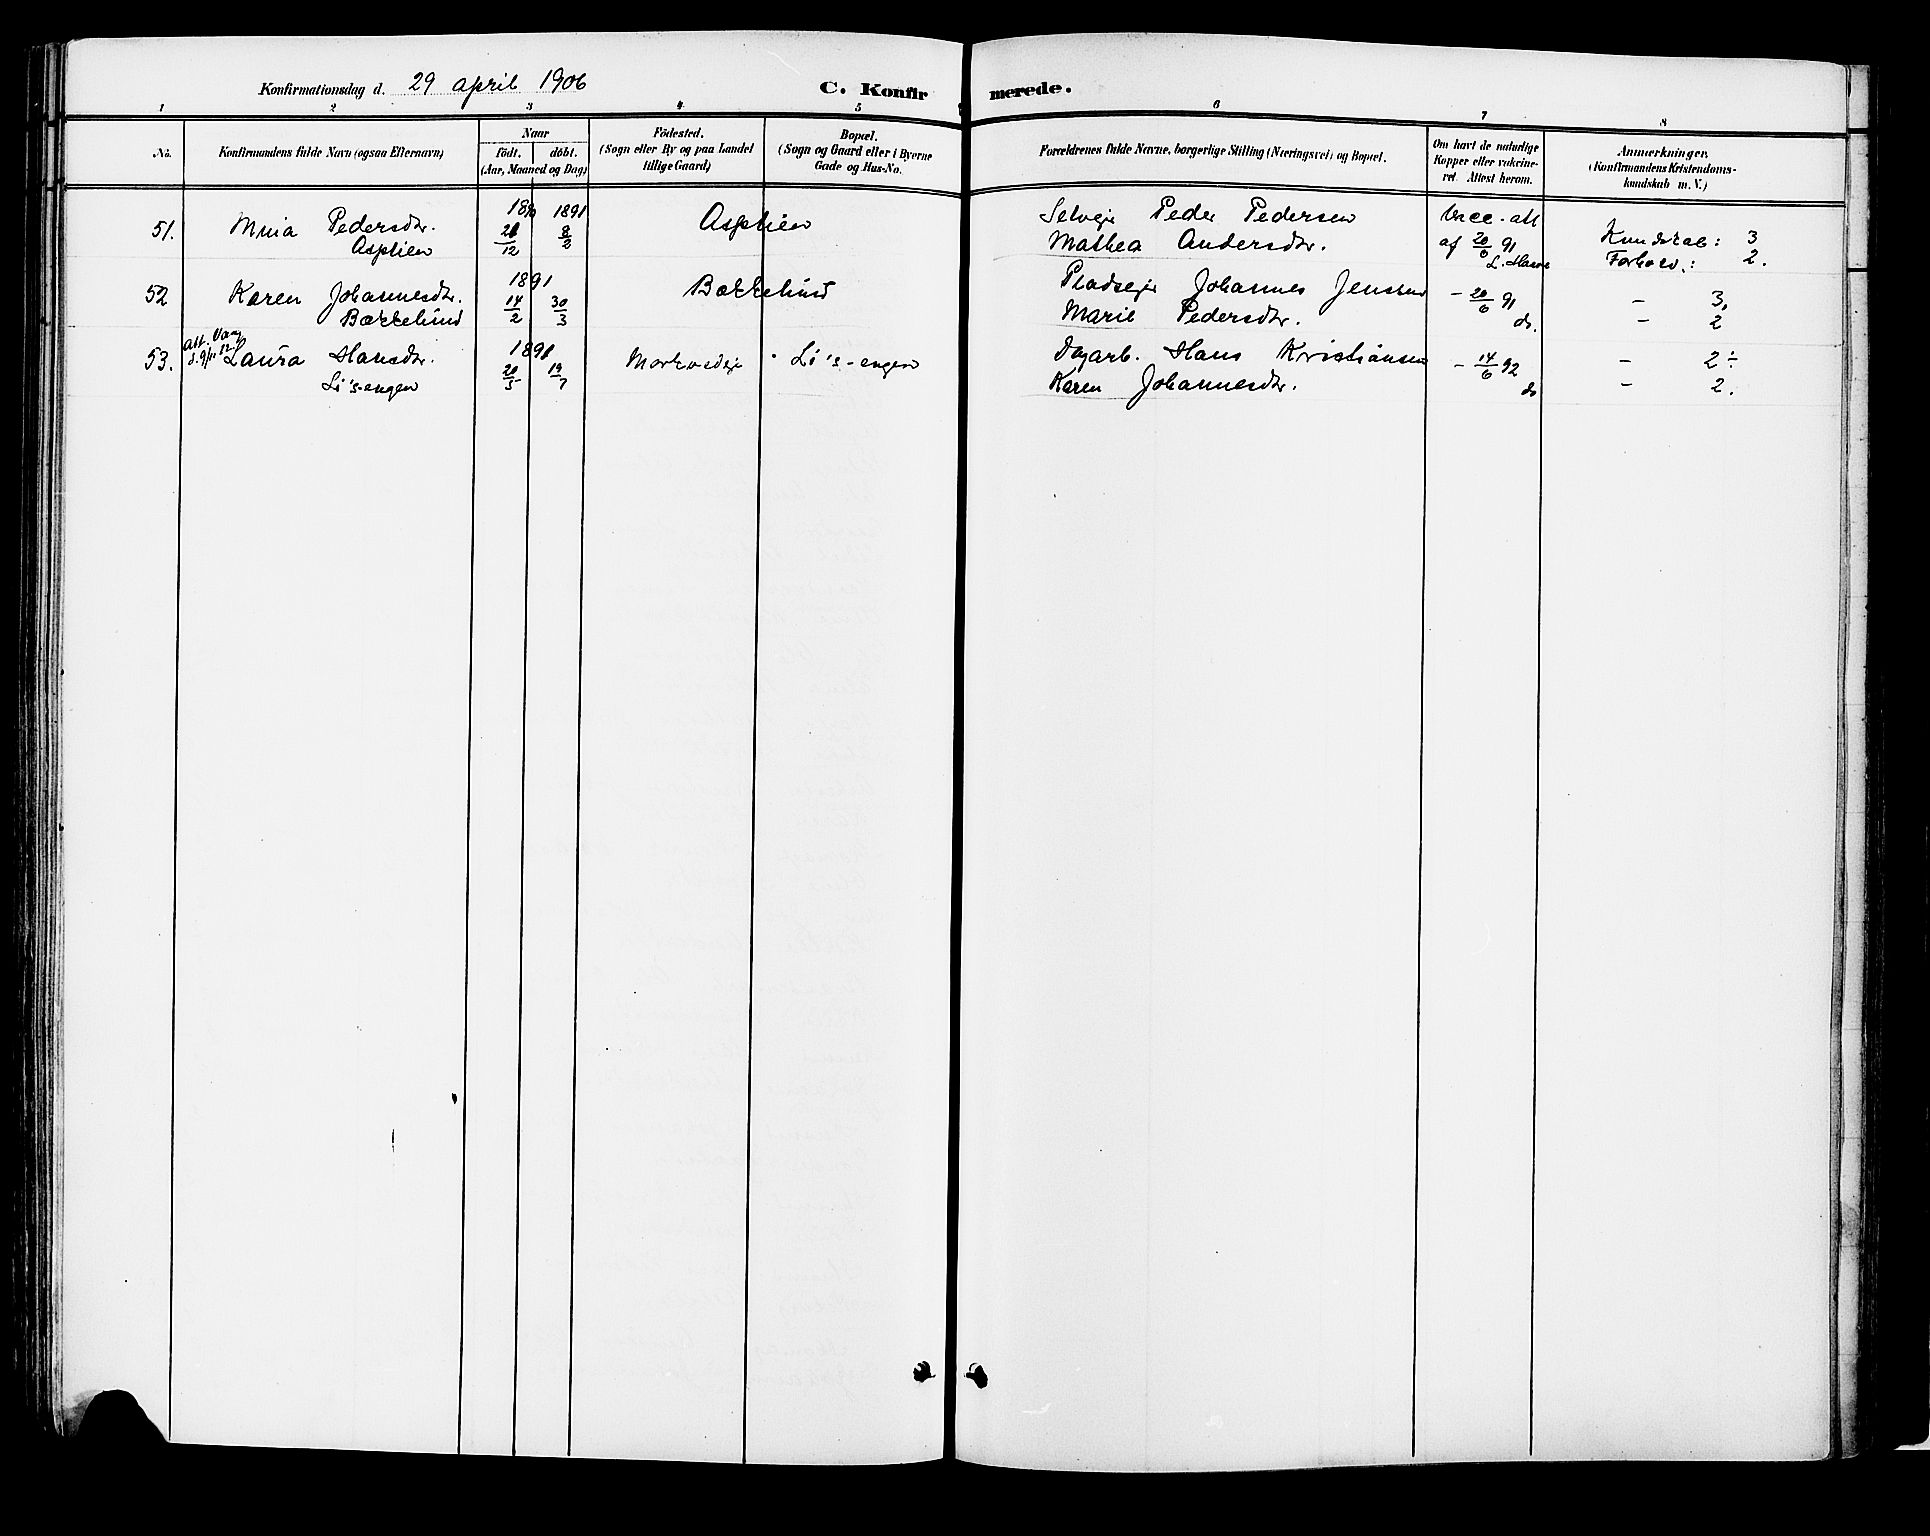 Konfirmationsdag d. 29 april 1906
C. Konfirmerede.
1 2 3 4 5 6 7 8
No.
Konfirmandens fulde Navn (ogsaa Efternavn)
Naar
födt. döbt.
(Aar, Maaned og Dag)
Födested.
(Sogn eller By og paa Landet
tillige Gaard)
Bopæl.
(Sogn og Gaard eller i Byerne
Gade og Hus-No.
Forældrenes fulde Navne, borgerlige Stilling (Næringsvei) og Bopæl.
Om havt de naturlige
Kopper eller vakcine-
ret. Attest herom.
Anmærkninger.
(Konfirmandens Kristendoms-
kundskab m. V.)
51. Mina Pedersdtr. 1890 1891 Asplien Selveje Peder Pedersen Vacc. att
Asplien 21/12 8/2 Mathea Andersdtr. af 20/6 91 Kundskab: 3
Forhold.: 2.
52 Karen Johannesdtr. 1891 Bækkelund Pladseje Johannes Jenssen
Bækkelund 14/2 30/3 Marie Pedersdtr. - 20/6 91 do. - 3,
- 2
att. Vang
53. Laura Hansdtr. 1891 Li's-engen Dagarb. Hans Kristiansen - 14/6 92 - 2÷
Li's-engen 20/5 19/7 Karen Johannesdtr. do - 2.